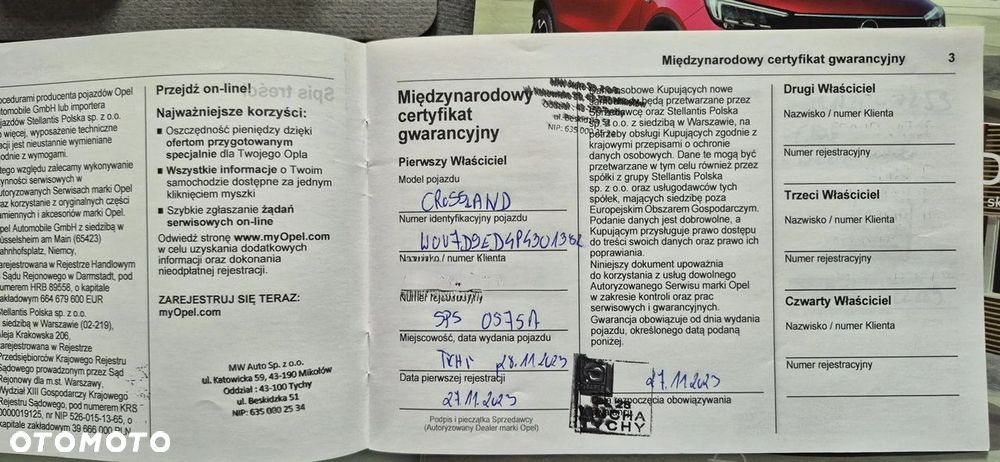 Międzynarodowy certyfikat gwarancyjny 3
ocedurami producenta pojazdów Opel
utomobile GmbH lub importera
ojazdów Stellantis Polska sp. z o.o.
o więcej, wyposażenie techniczne
acji jest nieustannie wymieniane
odnie z wymogami.
tego względu zalecamy wykonywanie
zynności serwisowych w
utoryzowanych Serwisach marki Opel
raz korzystanie z oryginalnych części
amiennych i akcesoriów marki Opel.
Opel Automobile GmbH z siedzibą w
üsselsheim am Main (65423)
ahnhofsplatz, Niemcy,
arejestrowana w Rejestrze Handlowym
Sądu Rejonowego w Darmstadt, pod
numerem HRB 89558, o kapitale
akładowym 664 679 600 EUR
Stellantis Polska sp. z o.o.
siedzibą w Warszawie (02-219),
Aleja Krakowska 206,
zarejestrowana w Rejestrze
Przedsiębiorców Krajowego Rejestru
Sądowego prowadzonym przez Sąd
Rejonowy dla m.st. Warszawy,
Wydział XIII Gospodarczy Krajowego
Rejestru Sądowego, pod numerem KRS
0000019125, nr NIP 526-015-13-65, o
kapitale zakładowym 39 666 000 PLN
Przejdź on-line!
Najważniejsze korzyści:
Oszczędność pieniędzy dzięki
ofertom przygotowanym
specjalnie dla Twojego Opla
Wszystkie informacje o Twoim
samochodzie dostępne za jednym
kliknięciem myszki
Szybkie zgłaszanie żądań
serwisowych on-line
Odwiedź stronę www.myOpel.com
w celu uzyskania dodatkowych
informacji oraz dokonania
nieodpłatnej rejestracji.
ZAREJESTRUJ SIĘ TERAZ:
myOpel.com
MW Auto Sp. z o.o.
ul. Katowicka 59, 43-190 Mikołów
Oddział : 43-100 Tychy
ul. Beskidzka 51
NIP: 635 000 25 34
Międzynarodowy
certyfikat
gwarancyjny
Pierwszy Właściciel
Model pojazdu
CROSSLAND
Numer identyfikacyjny pojazdu
Nazwisko / numer Klienta
Numer rejestracyjny
SPS 0575A
Miejscowość, data wydania pojazdu
28.11.2023
Data pierwszej rejestracji
27.11.2023
Podpis i pieczątka Sprzedawcy
(Autoryzowany Dealer marki Opel)
MW Auto Sp. z o.o.
ul. Beskidzka 51
NIP: 635 000 25 34
osobowe Kupujących nowe
będą przetwarzane przez
Sprzedawcę oraz Stellantis Polska
sp. z o.o. z siedzibą w Warszawie, na
potrzeby obsługi Kupujących zgodnie z
krajowymi przepisami o ochronie
danych osobowych. Dane te mogą być
przetwarzane w tym celu również przez
spółki z grupy Stellantis Polska
sp. z o.o. oraz usługodawców tych
spółek, mających siedzibę poza
Europejskim Obszarem Gospodarczym.
Podanie danych jest dobrowolne, a
Kupującym przysługuje prawo dostępu
do treści swoich danych oraz prawo ich
poprawiania.
Niniejszy dokument upoważnia
do korzystania z usług dowolnego
Autoryzowanego Serwisu marki Opel
w zakresie kontroli oraz prac
serwisowych i gwarancyjnych.
Gwarancja obowiązuje od dnia wydania
pojazdu, określonego datą podaną
poniżej.
27.11.2023
rozpoczęcia obowiązywania
Drugi Właściciel
Nazwisko / numer Klienta
Numer rejestracyjny
Trzeci Właściciel
Nazwisko / numer Klienta
Numer rejestracyjny
Czwarty Właściciel
Nazwisko / numer Klienta
Numer rejestracyjny
OTOMOTO